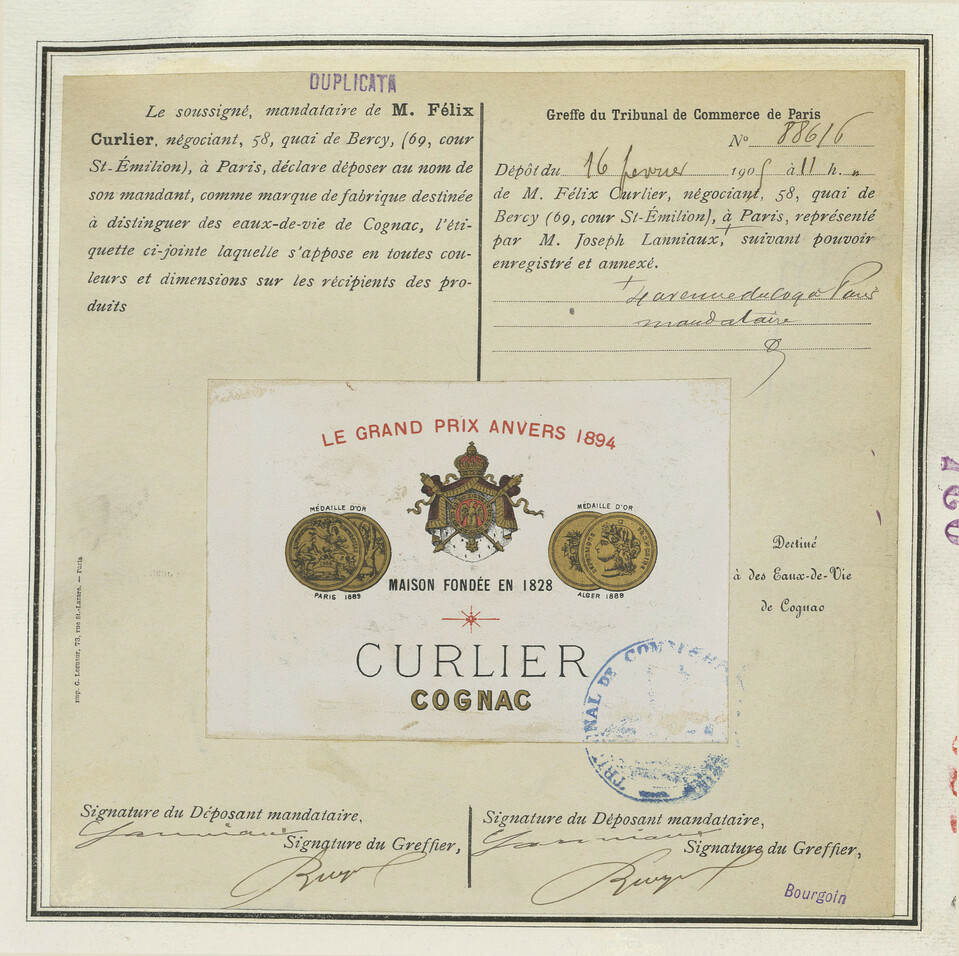 DUPLICATA
Le soussigné, mandataire de M. Félix
Curlier, négociant, 58, quai de Bercy, (69, cour
St-Émilion), à Paris, déclare déposer au nom de
son mandant, comme marque de fabrique destinée
à distinguer des eaux-de-vie de Cognac, l'éti-
quette ci-jointe laquelle s'appose en toutes cou-
leurs et dimensions sur les récipients des pro-
duits
Greffe du Tribunal de Commerce de Paris
No 88616
Dépôt du 16 fevrier 1905 à 11 h. "
de M. Félix Curlier, négociant, 58, quai de
Bercy (69, cour St-Émilion), à Paris, représenté
par M. Joseph Lanniaux,+ suivant pouvoir
enregistré et annexé.
+ 4 avenue du coq à Paris
mandataire
LE GRAND PRIX ANVERS 1894
MÉDAILLE D'OR
PARIS 1889
MÉDAILLE D'OR
ALGER 1889
MAISON FONDÉE EN 1828
CURLIER
COGNAC
TRIBUNAL DE COMMERCE
Destiné
à des Eaux-de-Vie
de Cognac
Imp. C. Lecutur, 73, rue St-Lazare. — Paris
Signature du Déposant mandataire,
Lanniaux
Signature du Greffier,
Signature du Déposant mandataire,
Lanniaux
Signature du Greffier,
Bourgoin